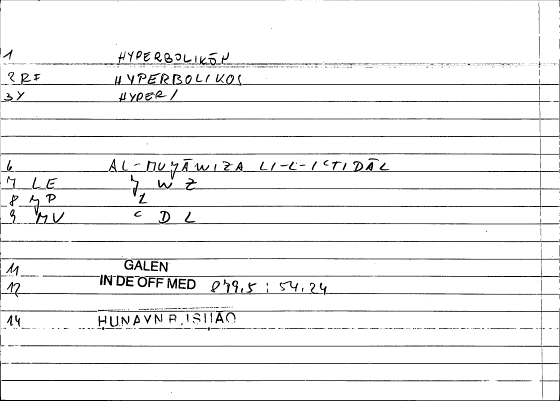 1 HYPERBOLIKŌN
2 RF HYPERBOLIKOS
3 Y HYPER/
6 AL-MUǦĀWIZA LI-L-IʿTIDĀL
7 LE ǧ W Z
8 MP L
9 MV ʿ D L
11 GALEN
12 IN DE OFF MED 879,5 : 54,24
14 HUNAYN B. ISHAQ